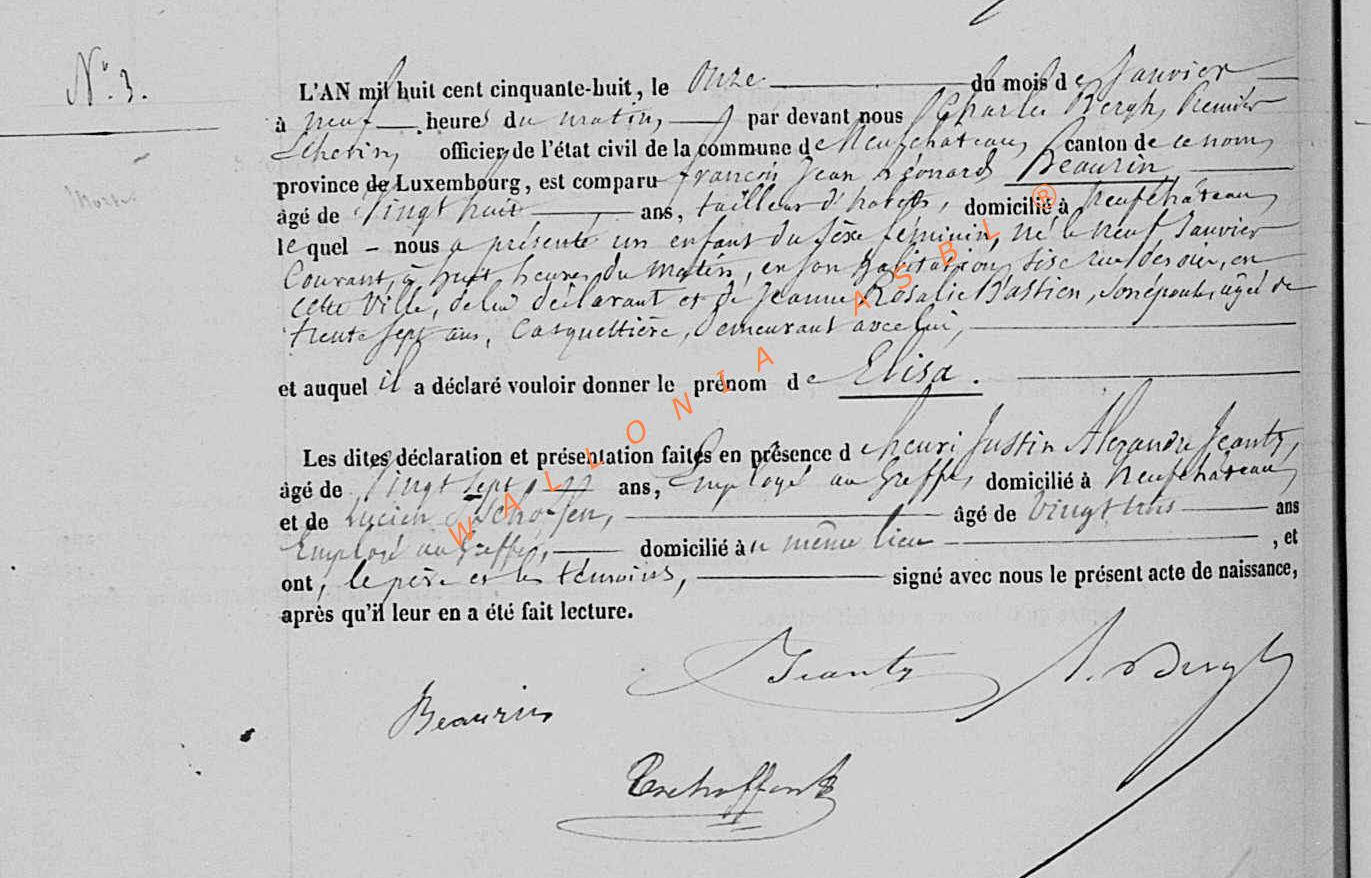 N° 3.
L'AN mil huit cent cinquante-huit, le Onze du mois de Janvier
à neuf heures du matin, par devant nous Charles Bergh, Premier
Echevin, officier de l'état civil de la commune de Neufchateau, canton de ce nom,
province de Luxembourg, est comparu François Jean Léonard Beaurin,
âgé de Vingt huit ans, tailleur d'habits, domicilié à Neufchâteau,
lequel - nous a présenté un enfant du sexe féminin, né le neuf Janvier
Courant, à huit heures du matin, en son habitation, sise rue en
cette Ville, de lui déclarant et de Jeanne Rosalie Bastien, son épouse, âgée de
trente sept ans, Casquettière, demeurant avec lui,
et auquel il a déclaré vouloir donner le prénom de Elisa.
Les dites déclaration et présentation faites en présence de henri Justin Alexandre Jeanty,
âgé de Vingt sept ans, Employé au Greffe, domicilié à Neufchateau,
et de Lucien Tschoffen, âgé de Vingt ans
Employé au Greffe, domicilié au même lieu , et
ont, le père et les témoins, signé avec nous le présent acte de naissance,
après qu'il leur en a été fait lecture.
Jeanty
Bergh
Beaurin
Tschoffen
WALLONIA ASBL ®